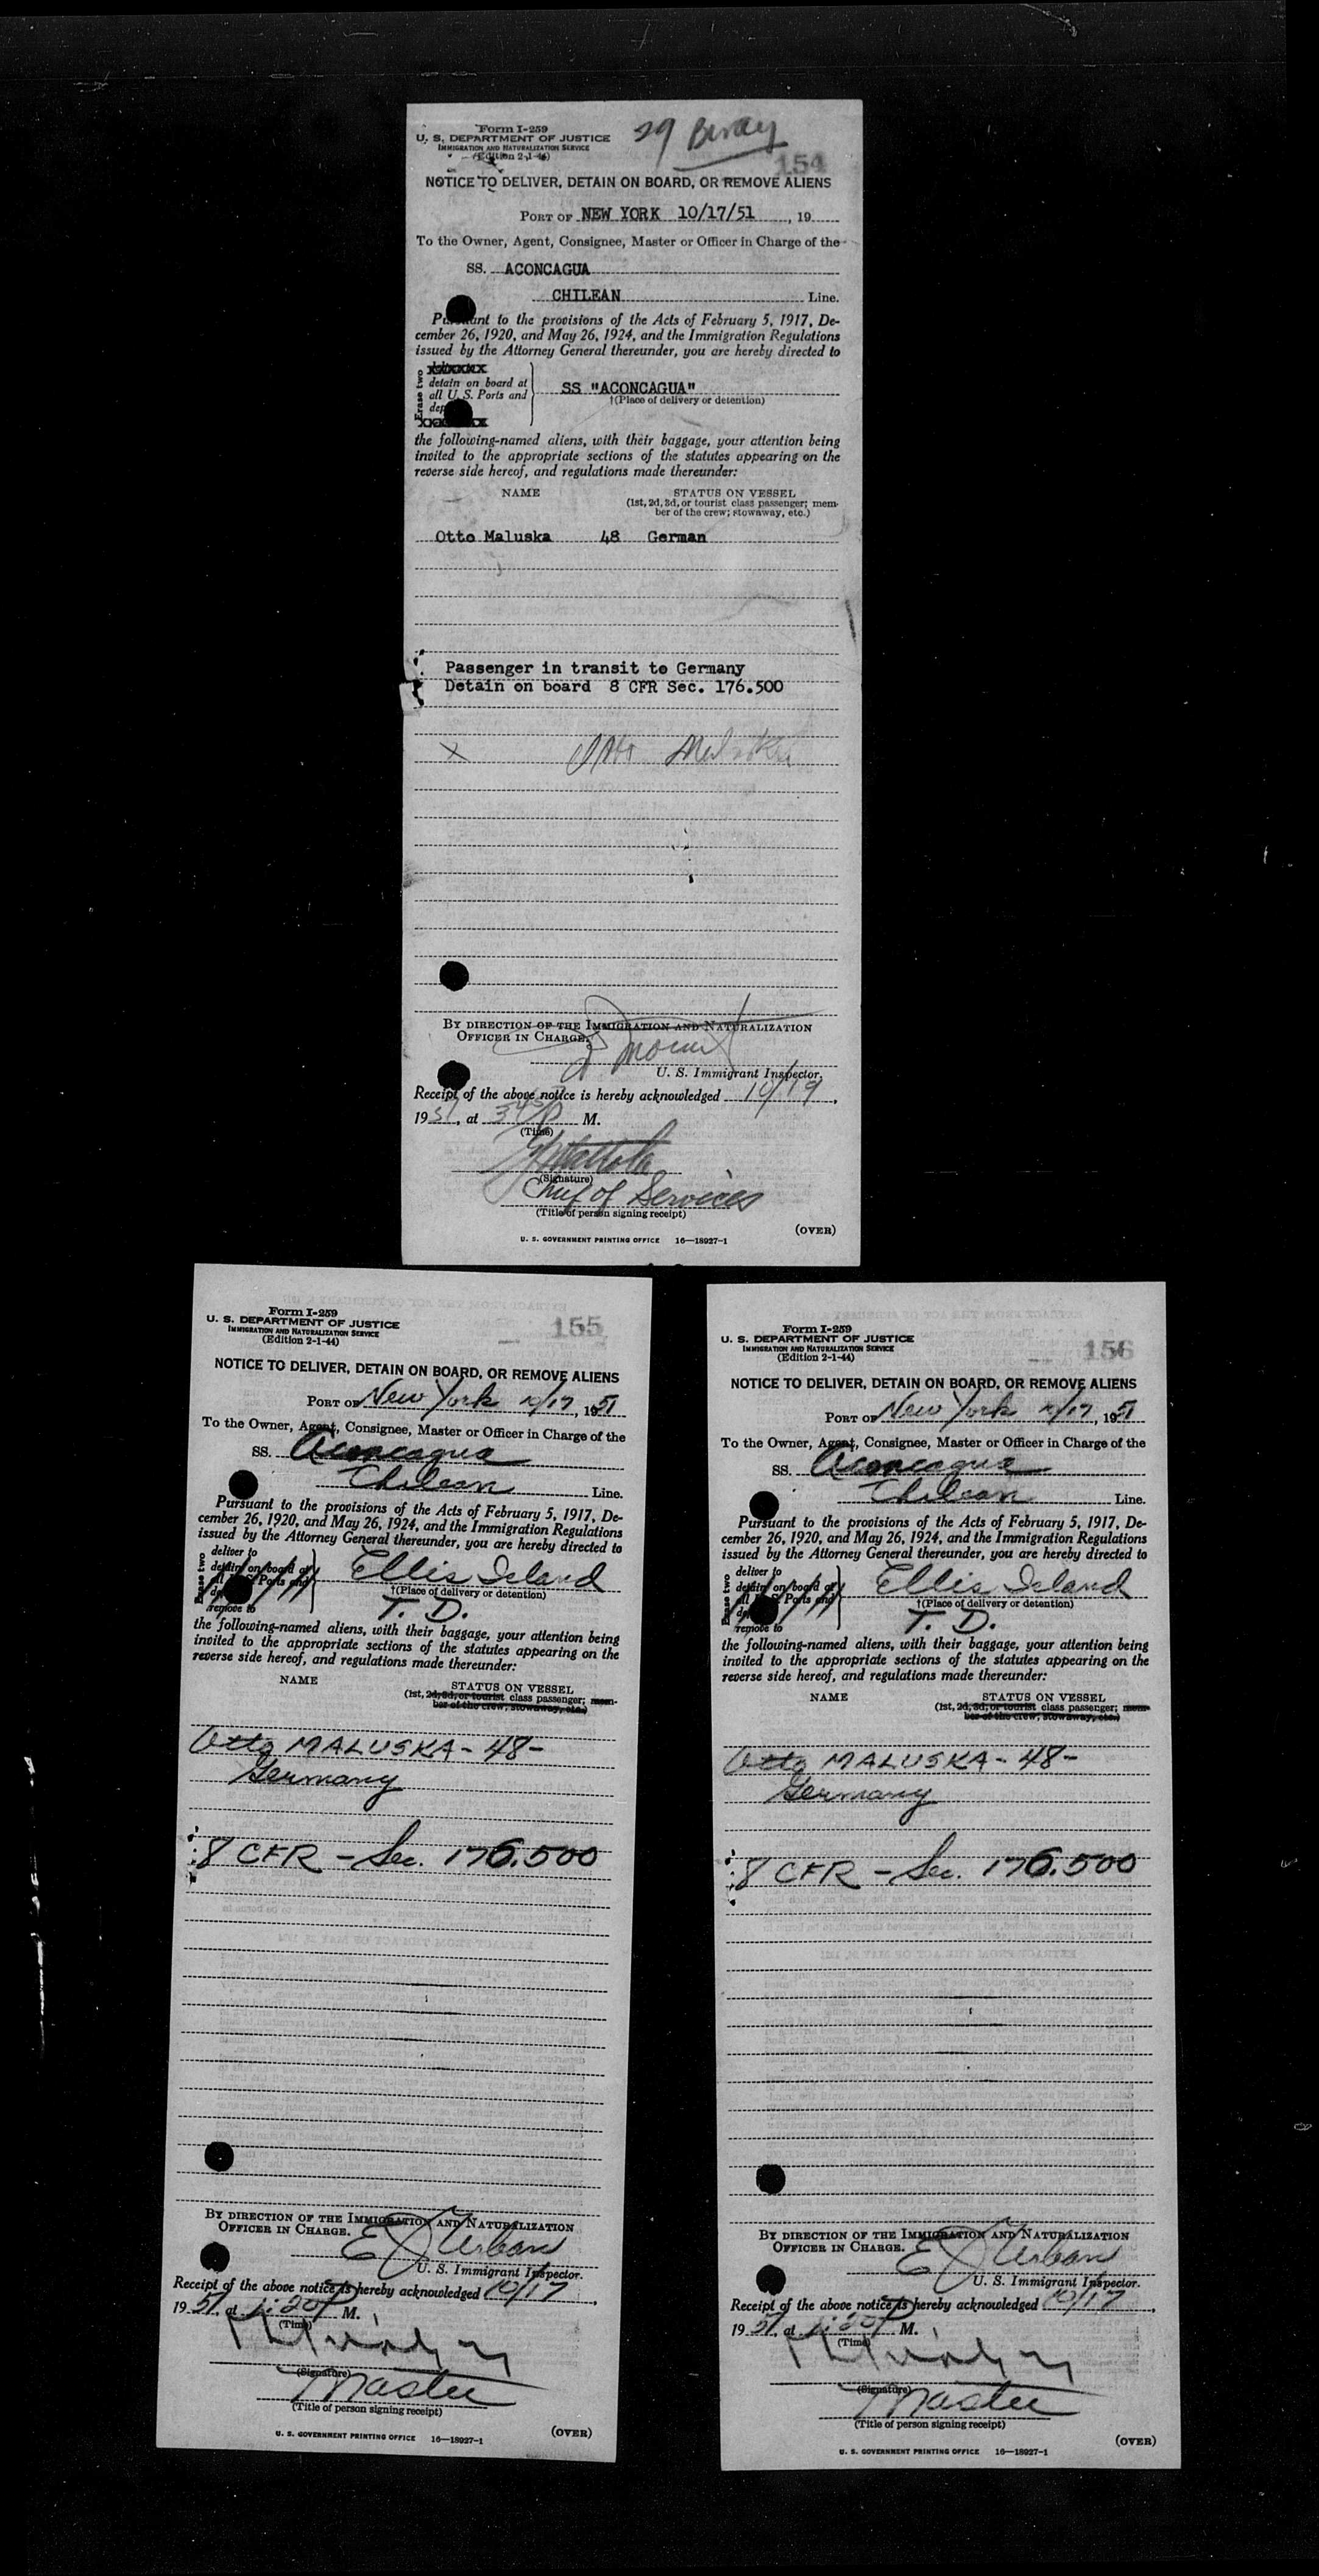 Form I-259
U. S. DEPARTMENT OF JUSTICE
IMMIGRATION AND NATURALIZATION SERVICE
(Edition 2-1-44)
29
154
NOTICE TO DELIVER, DETAIN ON BOARD, OR REMOVE ALIENS
PORT OF NEW YORK 10/17/51, 19
To the Owner, Agent, Consignee, Master or Officer in Charge of the
SS. ACONCAGUA
CHILEAN Line.
Pursuant to the provisions of the Acts of February 5, 1917, De-
cember 26, 1920, and May 26, 1924, and the Immigration Regulations
issued by the Attorney General thereunder, you are hereby directed to
Erase two
detain on board at
all U. S. Ports and
SS "ACONCAGUA"
†(Place of delivery or detention)
the following-named aliens, with their baggage, your attention being
invited to the appropriate sections of the statutes appearing on the
reverse side hereof, and regulations made thereunder:
NAME STATUS ON VESSEL
(1st, 2d, 3d, or tourist class passenger; mem-
ber of the crew; stowaway, etc.)
Otto Maluska 48 German
Passenger in transit to Germany
Detain on board 8 CFR Sec. 176.500
X Otto Maluska
BY DIRECTION OF THE IMMIGRATION AND NATURALIZATION
OFFICER IN CHARGE.
U. S. Immigrant Inspector.
Receipt of the above notice is hereby acknowledged 10/19,
1951, at M.
(Time)
(Signature)
Chief of Services
(Title of person signing receipt)
(OVER)
U. S. GOVERNMENT PRINTING OFFICE 16—18927-1
Form I-259
U. S. DEPARTMENT OF JUSTICE
IMMIGRATION AND NATURALIZATION SERVICE
(Edition 2-1-44)
155
NOTICE TO DELIVER, DETAIN ON BOARD, OR REMOVE ALIENS
PORT OF New York 10/17, 1951
To the Owner, Agent, Consignee, Master or Officer in Charge of the
SS. Aconcagua
Chilean Line.
Pursuant to the provisions of the Acts of February 5, 1917, De-
cember 26, 1920, and May 26, 1924, and the Immigration Regulations
issued by the Attorney General thereunder, you are hereby directed to
Erase two
deliver to
detain on board at
all U. S. Ports and
remove to
Ellis Island
†(Place of delivery or detention)
T. D.
the following-named aliens, with their baggage, your attention being
invited to the appropriate sections of the statutes appearing on the
reverse side hereof, and regulations made thereunder:
NAME STATUS ON VESSEL
(1st, 2d, 3d, or tourist class passenger; mem-
ber of the crew; stowaway, etc.)
Otto MALUSKA - 48 -
Germany
8 CFR - Sec. 176.500
BY DIRECTION OF THE IMMIGRATION AND NATURALIZATION
OFFICER IN CHARGE.
E J Urban
U. S. Immigrant Inspector.
Receipt of the above notice is hereby acknowledged 10/17,
1951, at 1:20 P M.
(Time)
(Signature)
Master
(Title of person signing receipt)
(OVER)
U. S. GOVERNMENT PRINTING OFFICE 16—18927-1
Form I-259
U. S. DEPARTMENT OF JUSTICE
IMMIGRATION AND NATURALIZATION SERVICE
(Edition 2-1-44)
156
NOTICE TO DELIVER, DETAIN ON BOARD, OR REMOVE ALIENS
PORT OF New York 10/17, 1951
To the Owner, Agent, Consignee, Master or Officer in Charge of the
SS. Aconcagua
Chilean Line.
Pursuant to the provisions of the Acts of February 5, 1917, De-
cember 26, 1920, and May 26, 1924, and the Immigration Regulations
issued by the Attorney General thereunder, you are hereby directed to
Erase two
deliver to
detain on board at
all U. S. Ports and
remove to
Ellis Island
†(Place of delivery or detention)
T. D.
the following-named aliens, with their baggage, your attention being
invited to the appropriate sections of the statutes appearing on the
reverse side hereof, and regulations made thereunder:
NAME STATUS ON VESSEL
(1st, 2d, 3d, or tourist class passenger; mem-
ber of the crew; stowaway, etc.)
Otto MALUSKA - 48 -
Germany
8 CFR - Sec. 176.500
BY DIRECTION OF THE IMMIGRATION AND NATURALIZATION
OFFICER IN CHARGE.
E J Urban
U. S. Immigrant Inspector.
Receipt of the above notice is hereby acknowledged 10/17,
1951, at 1:20 P M.
(Time)
(Signature)
Master
(Title of person signing receipt)
(OVER)
U. S. GOVERNMENT PRINTING OFFICE 16—18927-1